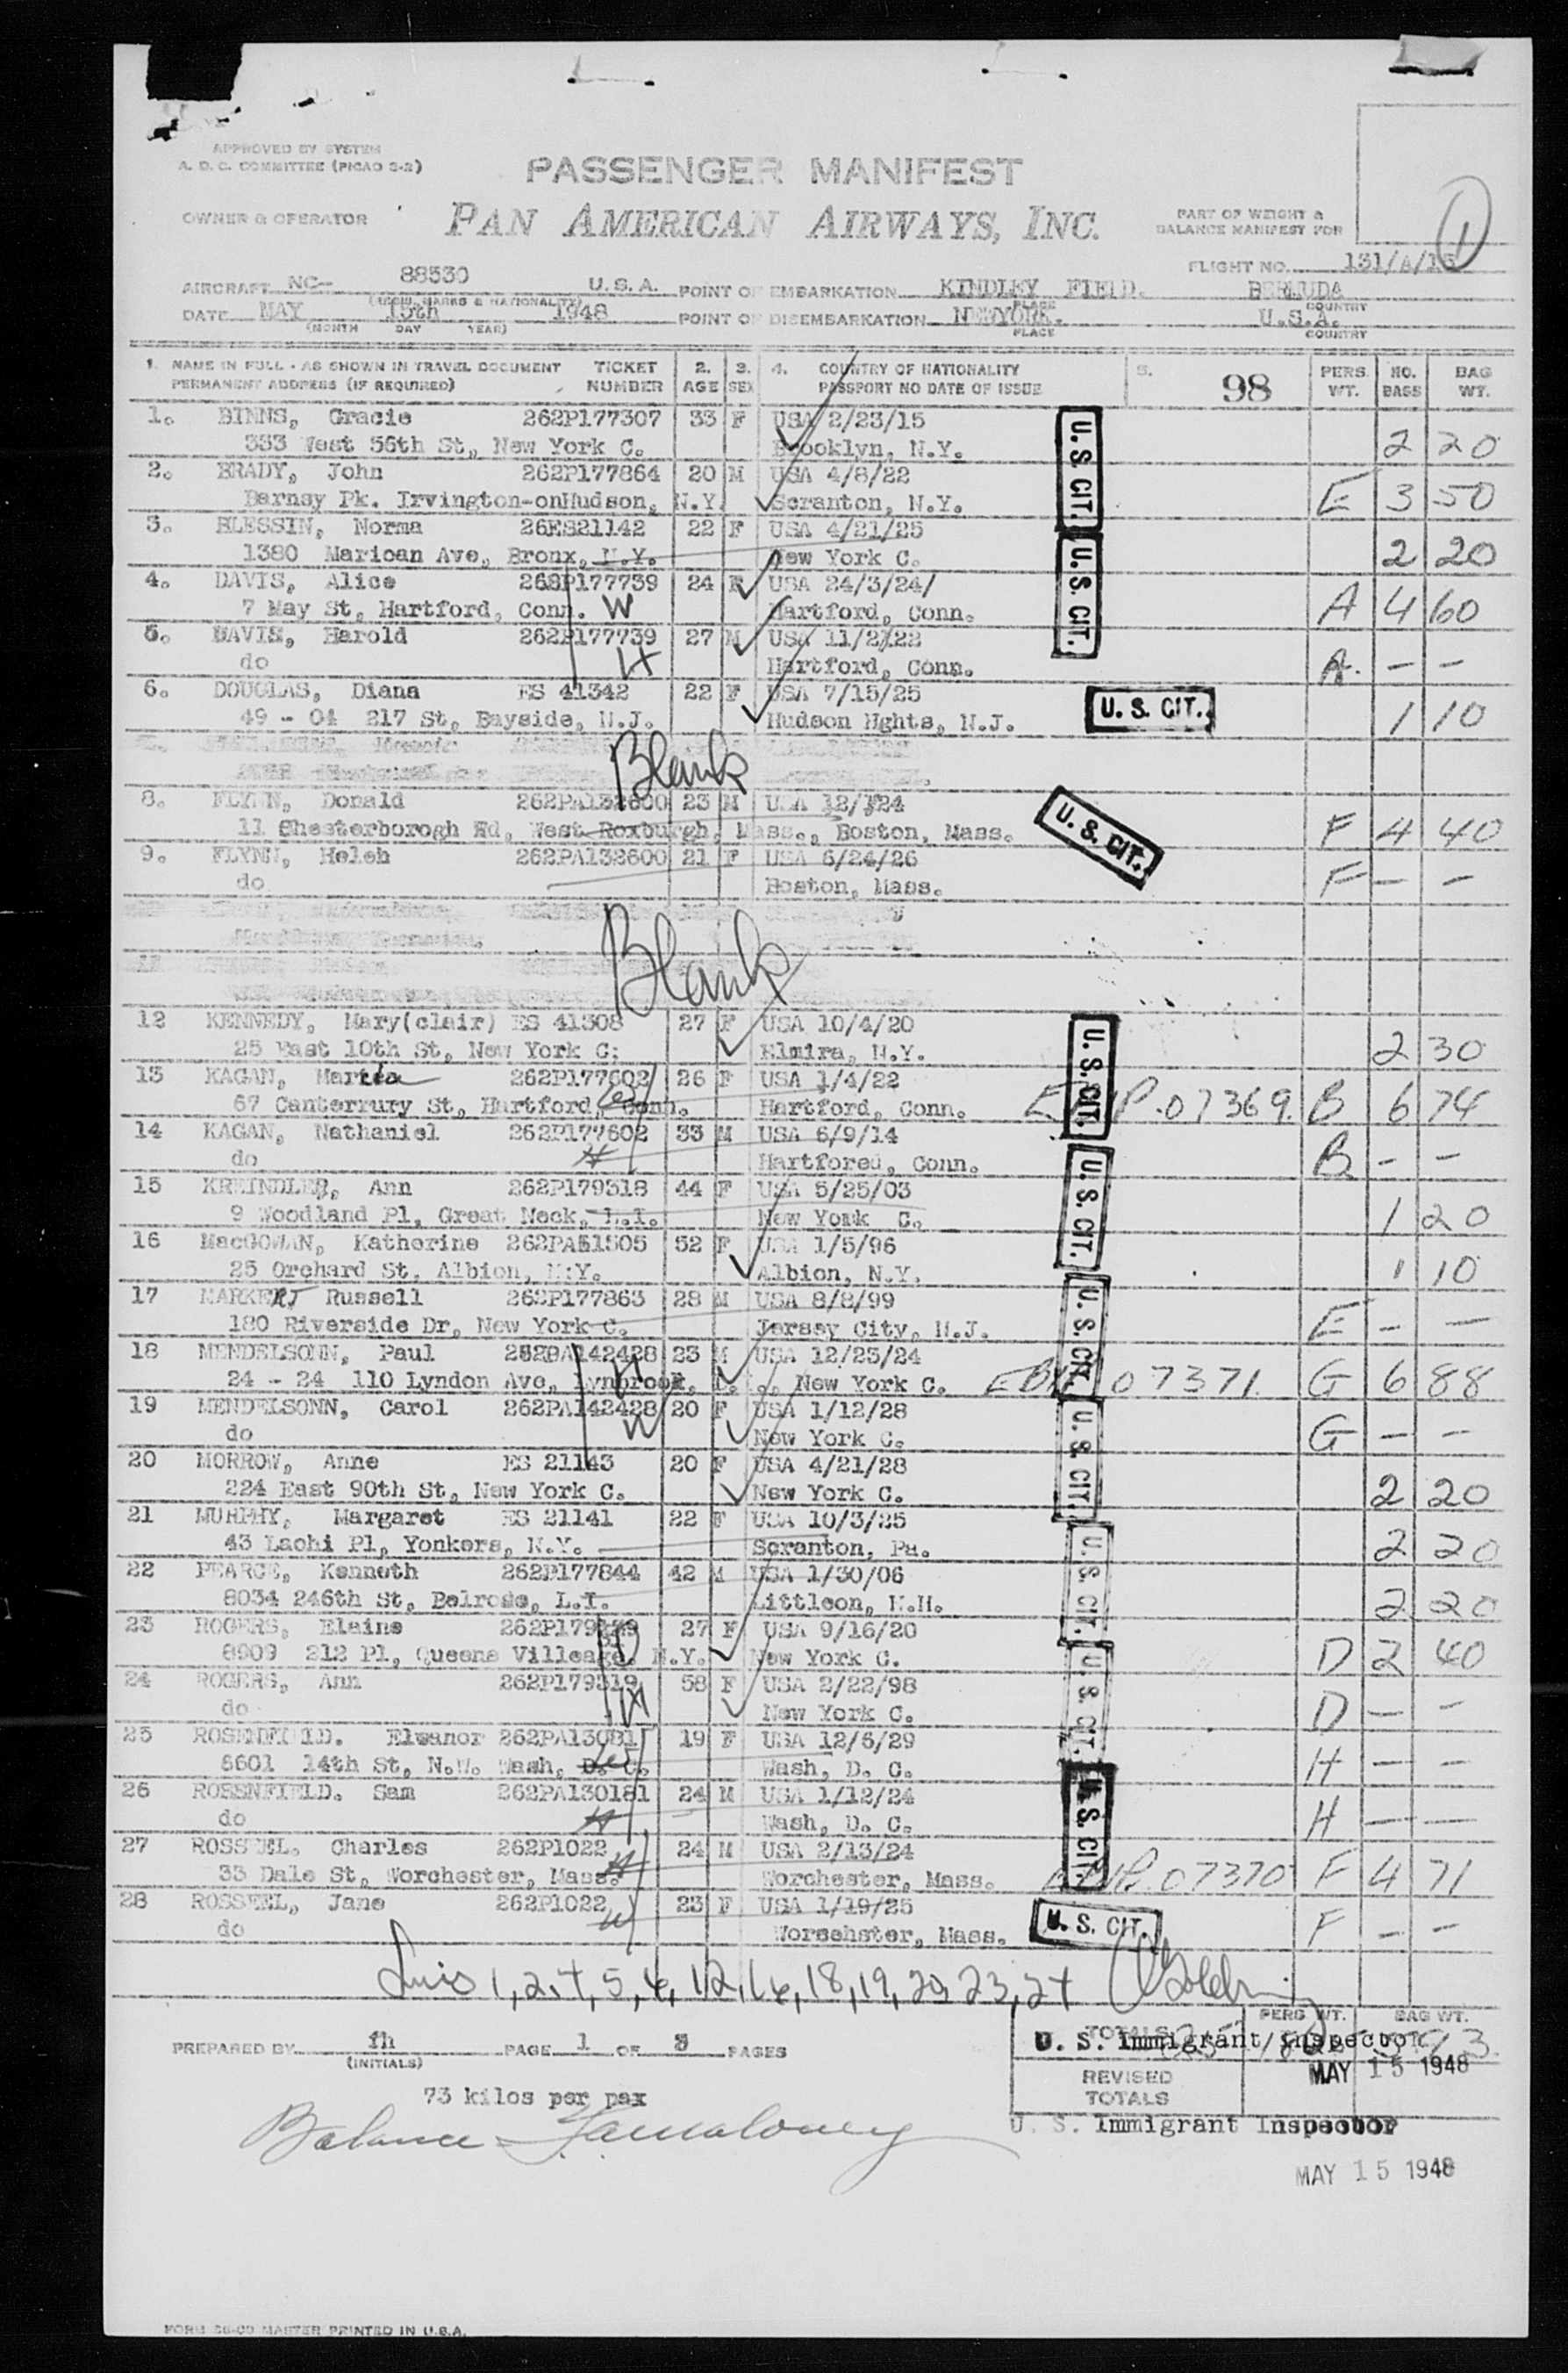 APPROVED BY SYSTEM
A. D. C. COMMITTEE (PICAO S-2)
PASSENGER MANIFEST
OWNER & OPERATOR
PAN AMERICAN AIRWAYS, INC.
PART OF WEIGHT &
BALANCE MANIFEST FOR
1
FLIGHT NO. 131/A/15
AIRCRAFT NC- 88530 U.S.A. POINT OF EMBARKATION KINDLEY FIELD. BERMUDA
(REGIS. MARKS & NATIONALITY) PLACE COUNTRY
DATE MAY 15th 1948 POINT OF DISEMBARKATION NEWYORK. U.S.A.
(MONTH DAY YEAR) PLACE COUNTRY
1. NAME IN FULL - AS SHOWN IN TRAVEL DOCUMENT TICKET 2. 3. 4. COUNTRY OF NATIONALITY 5. 98 PERS. NO. BAG
PERMANENT ADDRESS (IF REQUIRED) NUMBER AGE SEX PASSPORT NO DATE OF ISSUE WT. BAGS WT.
1. BINNS, Gracie 262P177307 33 F USA 2/23/15
333 West 56th St, New York C. Brooklyn, N.Y. U.S. CIT. 2 20
2. BRADY, John 262P177864 20 M USA 4/8/22
Barnay Pk. Irvington-onHudson, N.Y. Scranton, N.Y. E 3 50
3. BLESSIN, Norma 26ES21142 22 F USA 4/21/25
1380 Marican Ave, Bronx, N.Y. New York C. 2 20
4. DAVIS, Alice 262P177739 24 F USA 24/3/24/ U.S. CIT.
7 May St, Hartford, Conn. W Hartford, Conn. A 4 60
5. DAVIS, Harold 262P177739 27 M USA 11/2/22
do H Hartford, Conn. A. - -
6. DOUGLAS, Diana ES 41342 22 F USA 7/15/25
49 - 04 217 St, Bayside, N.J. Hudson Hghts, N.J. U. S. CIT. 1 10
Blank
8. FLYNN, Donald 262PA132600 23 M USA 12/1/24
11 Chesterborogh Rd, West Roxburgh, Mass., Boston, Mass. U. S. CIT. F 4 40
9. FLYNN, Heleh 262PA132600 21 F USA 6/24/26
do Boston, Mass. F - -
Blank
12 KENNEDY, Mary(clair) ES 41308 27 F USA 10/4/20
25 East 10th St, New York C: Elmira, N.Y. U.S.CIT. 2 30
13 KAGAN, 262P177602 26 F USA 1/4/22
67 Canterrury St, Hartford, Conn. Hartford, Conn. 07369. B 6 74
14 KAGAN, Nathaniel 262P177602 33 M USA 6/9/14
do H Hartfored, Conn. B - -
15 KREINDLER, Ann 262P179318 44 F USA 5/25/03 U.S. CIT.
9 Woodland Pl, Great Neck, L.I. New York C. 1 20
16 MacGOWAN, Katherine 262PA51505 52 F USA 1/5/96
25 Orchard St, Albion, N:Y. Albion, N.Y. 1 10
17 MARKERT Russell 262P177863 28 M USA 8/8/99
180 Riverside Dr, New York C. Jersey City, N.J. U. S. CIT. E - -
18 MENDELSONN, Paul 262PA142428 23 M USA 12/23/24
24 - 24 110 Lyndon Ave, Lynbrook, New York C. 07371 G 6 88
19 MENDELSONN, Carol 262PA142428 20 F USA 1/12/28
do W New York C. U. S. CIT. G - -
20 MORROW, Anne ES 21143 20 F USA 4/21/28
224 East 90th St, New York C. New York C. 2 20
21 MURPHY, Margaret ES 21141 22 F USA 10/3/25
43 Lachi Pl, Yonkers, N.Y. Scranton, Pa. U. S. CIT. 2 20
22 PEARCE, Kenneth 262P177844 42 M USA 1/30/06
8034 246th St, Belrose, L.I. Littleon, N.H. 2 20
23 ROGERS, Elaine 27 F USA 9/16/20
8909 212 Pl, Queens Villeage, N.Y. New York C. D 2 40
24 ROGERS, Ann 262P179319 58 F USA 2/22/98 U. S. CIT.
do New York C. D - -
25 ROSENFIELD. Eleanor 262PA13081 19 F USA 12/6/29
6601 14th St, N.W. Wash, D. C. Wash, D. C. H - -
26 ROSENFIELD. Sam 262PA130181 24 M USA 1/12/24
do H Wash, D. C. U. S. CIT. H - -
27 ROSSEEL, Charles 262P1022 24 M USA 2/13/24
33 Dale St, Worchester, Mass. H Worchester, Mass. 07370 F 4 71
28 ROSSEEL, Jane 262P1022 23 F USA 1/19/25
do W Worsehster, Mass. U. S. CIT. F - -
1, 2, 4, 5, 6, 12, 16, 18, 19, 20, 23, 24
PERS WT. BAG WT.
TOTALS
U. S. Immigrant Inspector
PREPARED BY fh PAGE 1 OF 3 PAGES
(INITIALS)
MAY 15 1948
REVISED
TOTALS
73 kilos per pax
U. S. Immigrant Inspector
Balance
MAY 15 1948
FORM MASTER PRINTED IN U.S.A.